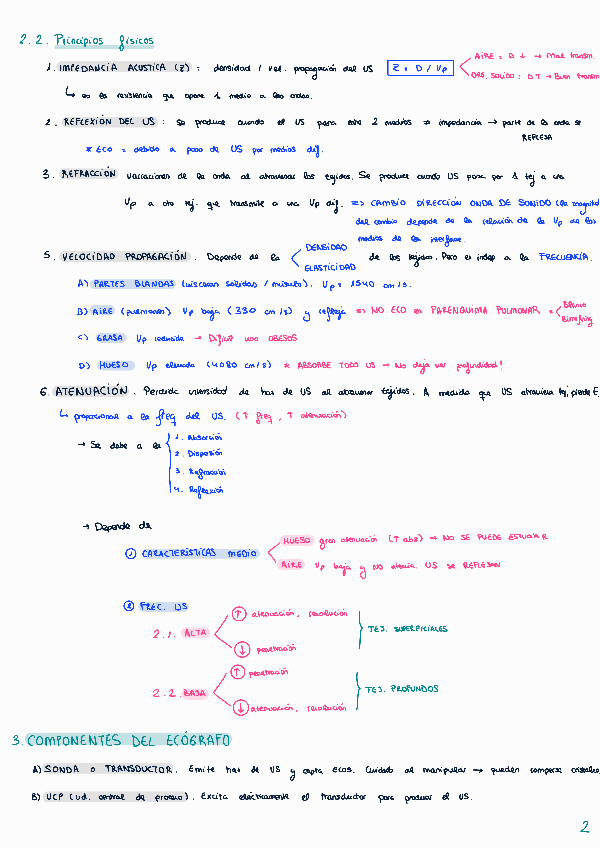 2.2. Principios físicos
1. IMPEDANCIA ACUSTICA (Z) : densidad / vel. propagación del US Z = D / Vp
AIRE : D ↓ → Mal transm.
ORG. SOLIDO : D ↑ → Buen transm
↳ es la resistencia que opone 1 medio a las ondas.
2. REFLEXIÓN DEL US : Se produce cuando el US pasa entre 2 medios ≠ impedancia → parte de la onda se
REFLEJA
* ECO = debido a paso de US por medios dif.
3. REFRACCIÓN variaciones de la onda al atravesar los tejidos. Se produce cuando US pasa por 1 tej a una
Vp a otro tej. que transmite a una Vp dif. => CAMBIO DIRECCIÓN ONDA DE SONIDO (la magnitud
del cambio depende de la relación de la Vp de los
medios de la interfase.
5. VELOCIDAD PROPAGACIÓN. Depende de la
DENSIDAD
ELASTICIDAD
de los tejidos. Pero es indep a la FRECUENCIA.
A) PARTES BLANDAS (vísceras sólidas / músculo). Vp = 1540 cm/s.
B) AIRE (pulmones) Vp baja (330 cm/s) y refleja => NO ECO en PARÉNQUIMA PULMONAR =
C) GRASA Vp reducida → Difícil uso OBESOS
D) HUESO Vp elevada (4080 cm/s) * ABSORBE TODO US → No deja ver profundidad!
6. ATENUACIÓN. Perdida intensidad de haz de US al atravesar tejidos. A medida que US atraviesa tej, pierde E.
↳ proporcional a la freq del US. (↑ freq, ↑ atenuación)
→ Se debe a la
1. Absorción
2. Dispersión
3. Refracción
4. Reflexión
→ Depende de
① CARACTERÍSTICAS MEDIO
HUESO gran atenuación (↑ abs) → NO SE PUEDE ESTUDIAR
AIRE Vp baja y NO atenúa. US se REFLEJAN
② FREC. US
2.1. ALTA
↑ atenuación, resolución
↓ penetración
TEJ. SUPERFICIALES
2.2. BAJA
↑ penetración
↓ atenuación, resolución
TEJ. PROFUNDOS
3. COMPONENTES DEL ECÓGRAFO
A) SONDA o TRANSDUCTOR. Emite haz de US y capta ecos. Cuidado al manipular → pueden romperse cristales
B) UCP (ud. central de proceso). Excita eléctricamente el transductor para producir el US.
2